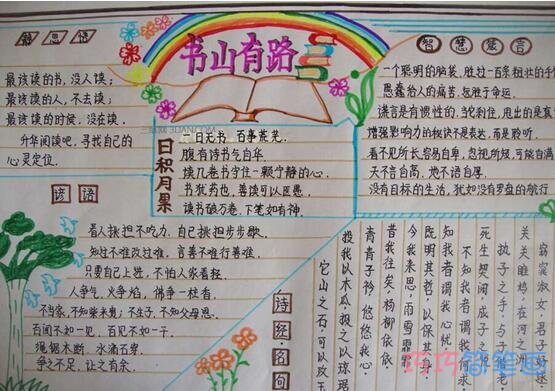 书山有路
智慧箴言
最该读的书,没人读;
最该读的人,不去读;
最该读的时候,没在读。
升华阅读吧,寻找自己的
心灵定位。
一个聪明的脑袋,胜过一百条粗壮的手
愚蠢给人的痛苦,甚于命运。
谎言是有惯性的,当死刹住,甩出的是真
增强影响力的秘诀不是表达,而是聆听。
看不见所长,容易自卑,忽视所短,可能自满
天不言自高,地不语自厚。
没有目标的生活,犹如没有罗盘的航行
日积月累
一日无书,百事荒芜。
腹有诗书气自华。
读几卷书守住一颗宁静的心。
书犹药也,善读可以医愚。
读书破万卷,下笔如有神。
谚语
看人挑担不吃力,自己挑担步步歇。
知过不难改过难,言善不难行善难。
只要自己上进,不怕人家看轻。
人争气,火争焰,佛争一炷香。
不当家,不知柴米贵;不生子,不知父母恩。
百闻不如一见,百见不如一干。
绳锯木断,水滴石穿。
争之不足,让之有余。
诗经·名句
窈窕淑女,君子好逑
关关雎鸠,在河之洲
执子之手,与子偕老
死生契阔,成子之
不知我者谓我何求
知我者谓我心忧,
既明其哲,以保其身
今我来思,雨雪霏霏
昔我往矣,杨柳依依,
青青子衿,悠悠我心,
投我以木瓜,报之以琼琚
它山之石,可以攻玉
巧巧简笔画